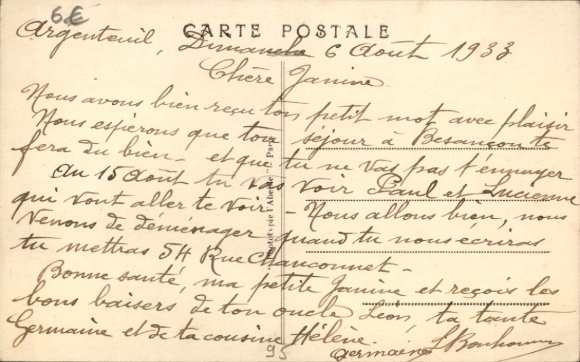 6€
CARTE POSTALE
Argenteuil, Dimanche 6 Août 1933
Chère Janine
Nous avons bien reçu ton petit mot avec plaisir
Nous espérons que ton séjour à Besançon te
fera du bien - et que tu ne vas pas t'ennuyer
au 15 Août tu vas voir Paul et Lucienne
qui vont aller te voir - Nous allons bien, nous
venons de déménager quand tu nous écriras
tu mettras 54 Rue Chanconnet -
Bonne santé, ma petite Janine et reçois les
bons baisers de ton oncle Léon, ta tante
Germaine et de ta cousine Hélène.
Germaine LBonhomme
95